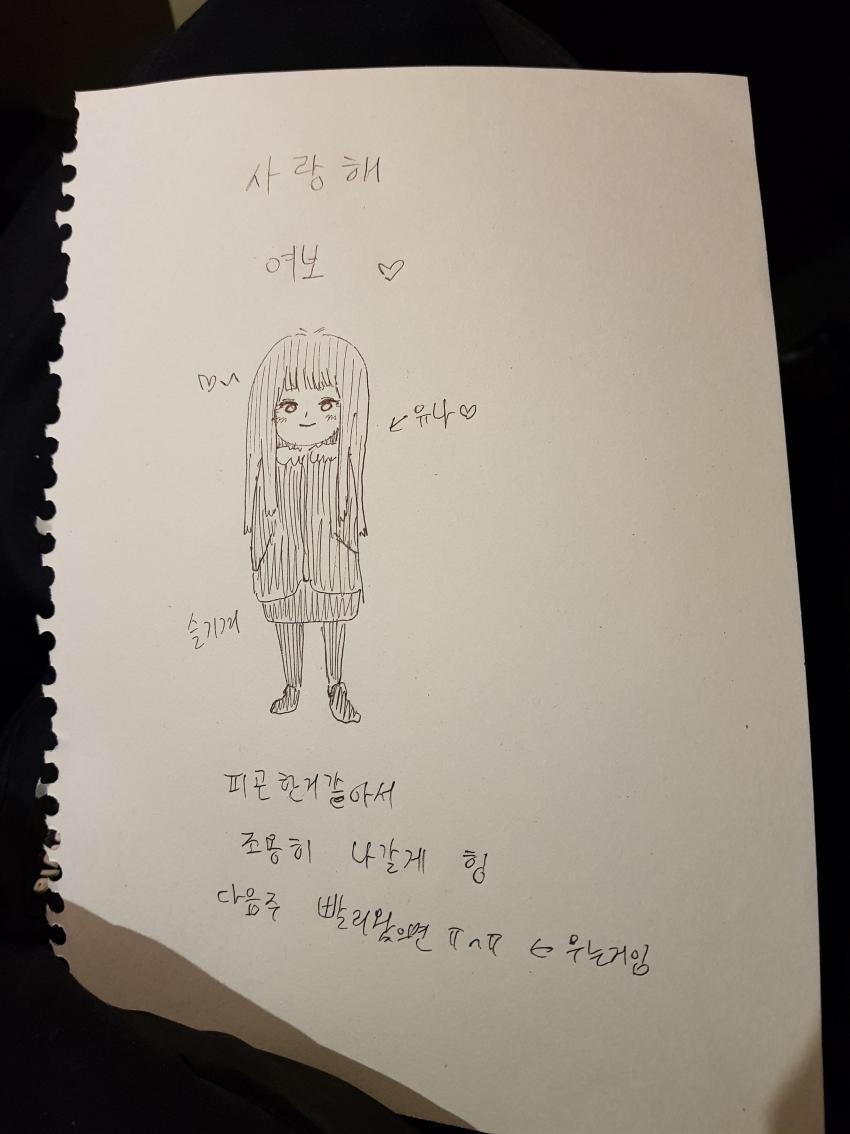 사랑해
여보 ♡
♡~
← 유나♡
슬기겨
피곤한거같아서
조용히 나갈게 힝
다음주 빨리왔으면 ㅠㅅㅠ ← 우는거임